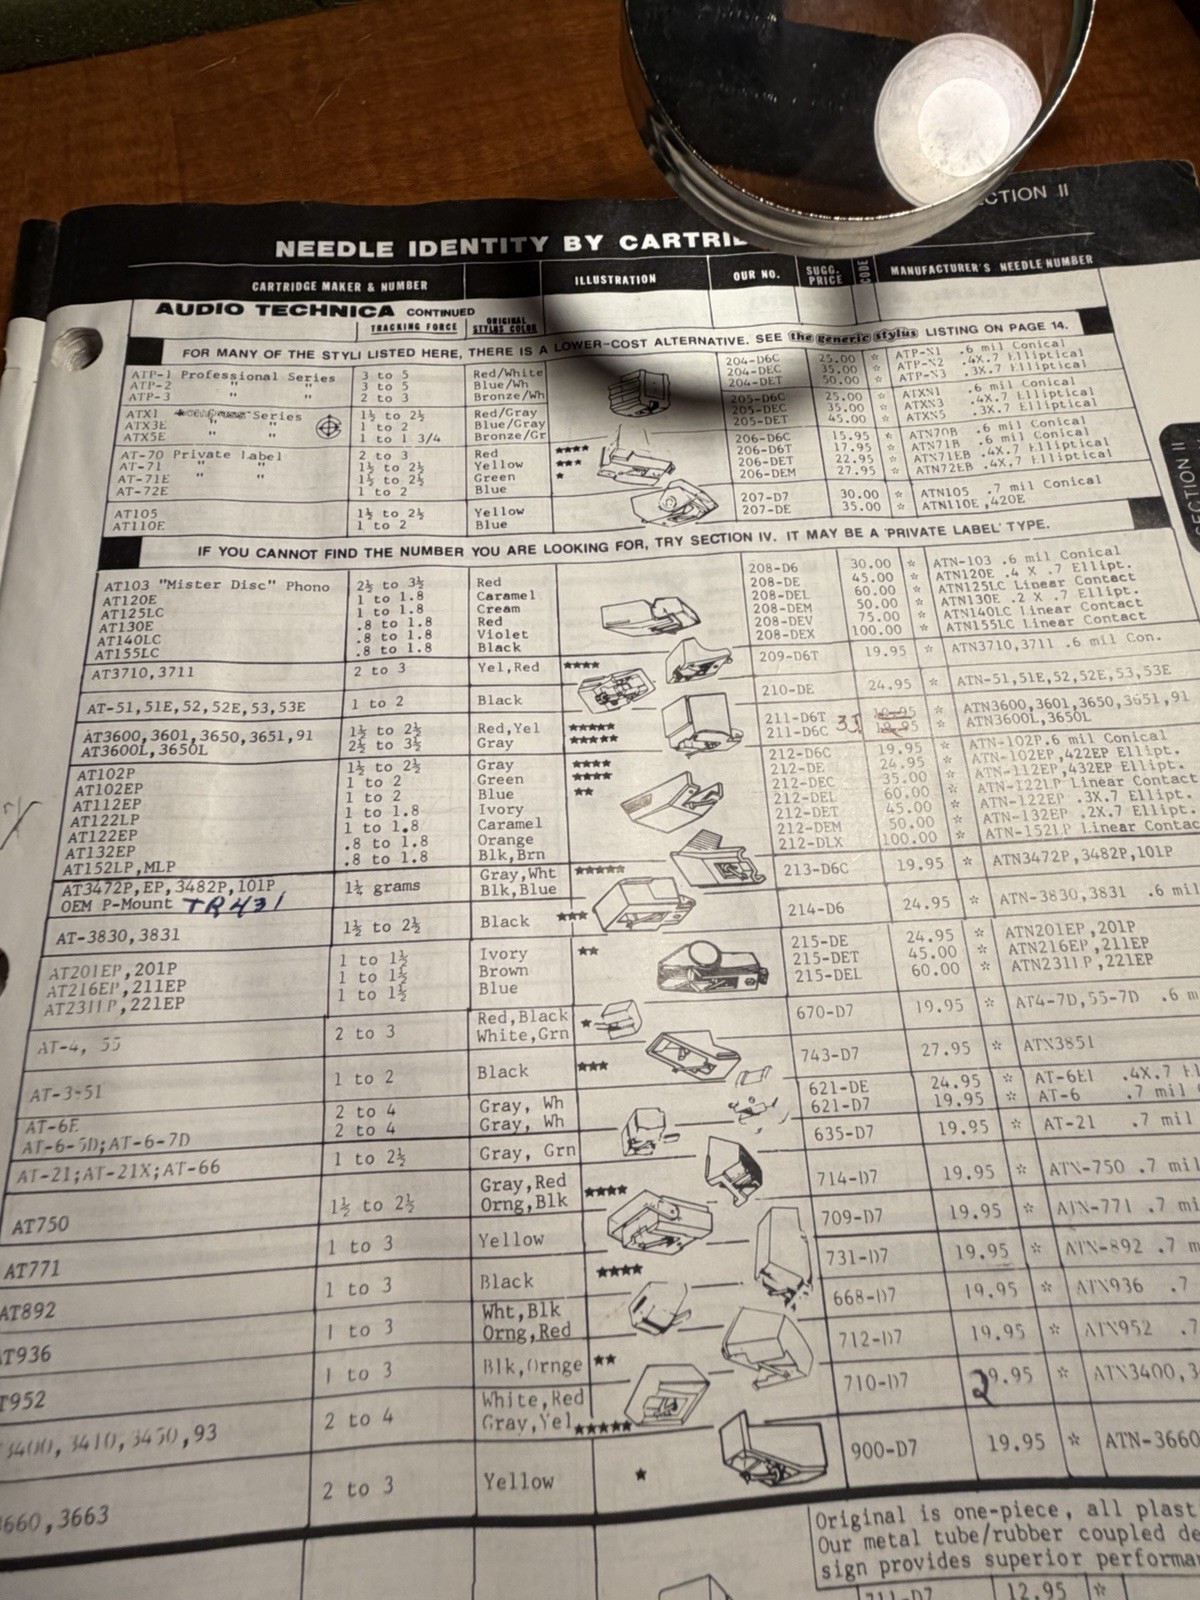 CTION II
NEEDLE IDENTITY BY CARTRI
CARTRIDGE MAKER & NUMBER ILLUSTRATION OUR NO. SUGG. PRICE CODE MANUFACTURER'S NEEDLE NUMBER
AUDIO TECHNICA CONTINUED TRACKING FORCE ORIGINAL STYLUS COLOR
FOR MANY OF THE STYLI LISTED HERE, THERE IS A LOWER-COST ALTERNATIVE. SEE the generic stylus LISTING ON PAGE 14.
ATP-1 Professional Series 3 to 5 Red/White 204-D6C 25.00 ☆ ATP-N1 .6 mil Conical
ATP-2 " " 3 to 5 Blue/Wh 204-DEC 35.00 ☆ ATP-N2 .4X.7 Elliptical
ATP-3 " " 2 to 3 Bronze/Wh 204-DET 50.00 ☆ ATP-N3 .3X.7 Elliptical
ATX1 Series 1½ to 2½ Red/Gray 205-D6C 25.00 ☆ ATXN1 .6 mil Conical
ATX3E " " 1 to 2 Blue/Gray 205-DEC 35.00 ☆ ATXN3 .4X.7 Elliptical
ATX5E " " 1 to 1 3/4 Bronze/Gr 205-DET 45.00 ☆ ATXN5 .3X.7 Elliptical
AT-70 Private Label 2 to 3 Red ★★★★ 206-D6C 15.95 ☆ ATN70B .6 mil Conical
AT-71 " " 1½ to 2½ Yellow ★★★ 206-D6T 17.95 ☆ ATN71B .6 mil Conical
AT-71E " " 1½ to 2½ Green ★ 206-DET 22.95 ☆ ATN71EB .4X.7 Elliptical
AT-72E 1 to 2 Blue 206-DEM 27.95 ☆ ATN72EB .4X.7 Elliptical
AT105 1½ to 2½ Yellow 207-D7 30.00 ☆ ATN105 .7 mil Conical
AT110E 1 to 2 Blue 207-DE 35.00 ☆ ATN110E,420E
IF YOU CANNOT FIND THE NUMBER YOU ARE LOOKING FOR, TRY SECTION IV. IT MAY BE A 'PRIVATE LABEL' TYPE.
AT103 "Mister Disc" Phono 2½ to 3½ Red 208-D6 30.00 ☆ ATN-103 .6 mil Conical
AT120E 1 to 1.8 Caramel 208-DE 45.00 ☆ ATN120E .4 X .7 Ellipt.
AT125LC 1 to 1.8 Cream 208-DEL 60.00 ☆ ATN125LC Linear Contact
AT130E .8 to 1.8 Red 208-DEM 50.00 ☆ ATN130E .2 X .7 Ellipt.
AT140LC .8 to 1.8 Violet 208-DEV 75.00 ☆ ATN140LC linear Contact
AT155LC .8 to 1.8 Black 208-DEX 100.00 ☆ ATN155LC Linear Contact
AT3710,3711 2 to 3 Yel,Red ★★★★ 209-D6T 19.95 ☆ ATN3710,3711 .6 mil Con.
AT-51,51E,52,52E,53,53E 1 to 2 Black 210-DE 24.95 ☆ ATN-51,51E,52,52E,53,53E
AT3600,3601,3650,3651,91 1½ to 2½ Red,Yel ★★★★★ 211-D6T ☆ ATN3600,3601,3650,3651,91
AT3600L,3650L 2½ to 3½ Gray ★★★★★ 211-D6C ☆ ATN3600L,3650L
AT102P 1½ to 2½ Gray ★★★★ 212-D6C 19.95 ☆ ATN-102P.6 mil Conical
AT102EP 1 to 2 Green ★★★★ 212-DE 24.95 ☆ ATN-102EP,422EP Ellipt.
AT112EP 1 to 2 Blue ★★ 212-DEC 35.00 ☆ ATN-112EP,432EP Ellipt.
AT122LP 1 to 1.8 Ivory 212-DEL 60.00 ☆ ATN-122LP Linear Contact
AT122EP 1 to 1.8 Caramel 212-DET 45.00 ☆ ATN-122EP .3X.7 Ellipt.
AT132EP .8 to 1.8 Orange 212-DEM 50.00 ☆ ATN-132EP .2X.7 Ellipt.
AT152LP,MLP .8 to 1.8 Blk,Brn 212-DLX 100.00 ☆ ATN-152LP Linear Contac
AT3472P,EP,3482P,101P 1¼ grams Gray,Wht ★★★★★ 213-D6C 19.95 ☆ ATN3472P,3482P,101P
OEM P-Mount TR431 Blk,Blue
AT-3830,3831 1½ to 2½ Black ★★★ 214-D6 24.95 ☆ ATN-3830,3831 .6 mil
AT201EP,201P 1 to 1½ Ivory ★★ 215-DE 24.95 ☆ ATN201EP,201P
AT216EP,211EP 1 to 1½ Brown 215-DET 45.00 ☆ ATN216EP,211EP
AT231LP,221EP 1 to 1½ Blue 215-DEL 60.00 ☆ ATN231LP,221EP
AT-4, 55 2 to 3 Red,Black ★ 670-D7 19.95 ☆ AT4-7D,55-7D .6 m
White,Grn
AT-3-51 1 to 2 Black ★★★ 743-D7 27.95 ☆ ATN3851
AT-6E 2 to 4 Gray, Wh 621-DE 24.95 ☆ AT-6EI .4X.7 El
AT-6-5D;AT-6-7D 2 to 4 Gray, Wh 621-D7 19.95 ☆ AT-6 .7 mil
AT-21;AT-21X;AT-66 1 to 2½ Gray, Grn 635-D7 19.95 ☆ AT-21 .7 mil
AT750 1½ to 2½ Gray,Red ★★★★ 714-D7 19.95 ☆ ATN-750 .7 mil
Orng,Blk
AT771 1 to 3 Yellow 709-D7 19.95 ☆ ATN-771 .7 mi
AT892 1 to 3 Black ★★★★ 731-D7 19.95 ☆ ATN-892 .7 m
T936 1 to 3 Wht,Blk 668-D7 19.95 ☆ ATN936 .7
Orng,Red
T952 1 to 3 Blk,Ornge ★★ 712-D7 19.95 ☆ ATN952 .7
3400,3410,3450,93 2 to 4 White,Red 710-D7 29.95 ☆ ATN3400,3
Gray,Yel ★★★★★
3660,3663 2 to 3 Yellow ★ 900-D7 19.95 ☆ ATN-3660
Original is one-piece, all plast
Our metal tube/rubber coupled de
sign provides superior performa
711-D7 12.95 ☆
SECTION II